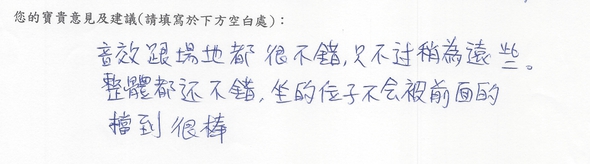 您的寶貴意見及建議(請填寫於下方空白處)：
音效跟場地都很不錯，只不过稍為遠些。
整體都还不错，坐的位子不会被前面的
擋到很棒